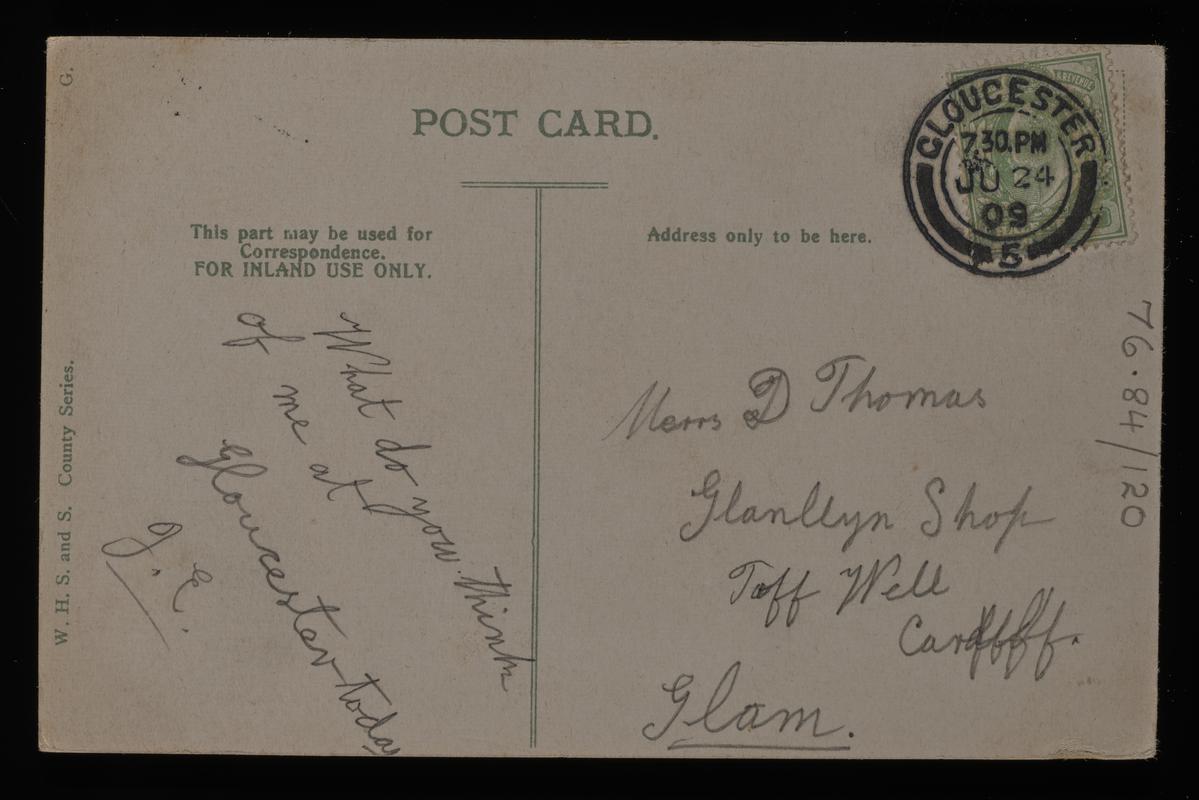 G.
POST CARD.
This part may be used for
Correspondence.
FOR INLAND USE ONLY.
Address only to be here.
& REVENUE
GLOUCESTER
7.30.PM
JU 24
09
5
What do you think
of me at
Gloucester today
J. E.
D Thomas
Glanllyn Shop
Taff Well
Cardiff.
Glam.
W. H. S. and S. County Series.
76.84/120